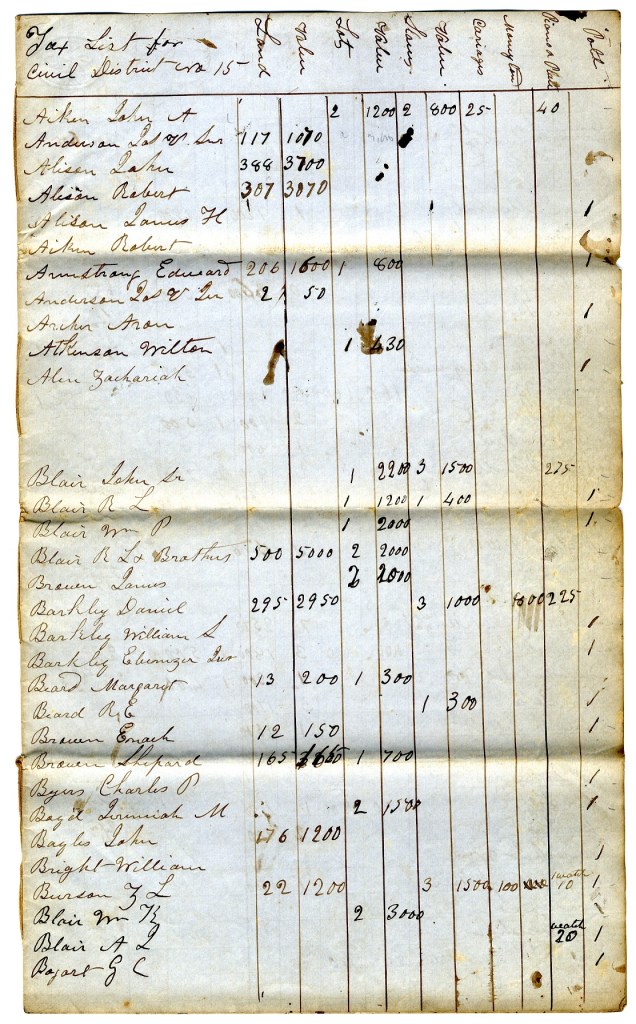 Tax List for Land Value Lot Value Slaves Value Cariages Money loand Pianos & Plate Polls
Civil District No 15
Aiken John A 2 1200 2 800 25 40
Anderson Jas V. Snr 117 1070
Alison John 388 3700
Alison Robert 307 3070
Alison James H 1
Aiken Robert
Armstrong Edward 206 1600 1 800 1
Anderson Jas V Jnr 21 50
Archer Aron 1
Atkinson Wilton 1 430
Alen Zachariah 1
Blair John Sr 1 2200 3 1500 275
Blair R L 1 1200 1 400 1
Blair Wm P 1 2000 1
Blair R L & Brothers 500 5000 2 2000
Brown James 2 2000
Barkley Daniel 295 2950 3 1000 225
Barkley William S 1
Barkley Ebenezer Jnr 1
Beard Margaret 13 200 1 300
Beard R E 1 300 1
Brown Enoch 12 150 1
Brown Shepard 165 1 700
Byers Charles P 1
Boyd Jeremiah M 2 1500 1
Bayles John 176 1200
Bright William 1
Burson Z L 22 1200 3 1500 100 watch 10 1
Blair Wm K 2 3000
Blair A L watch 20 1
Bogart G C 1